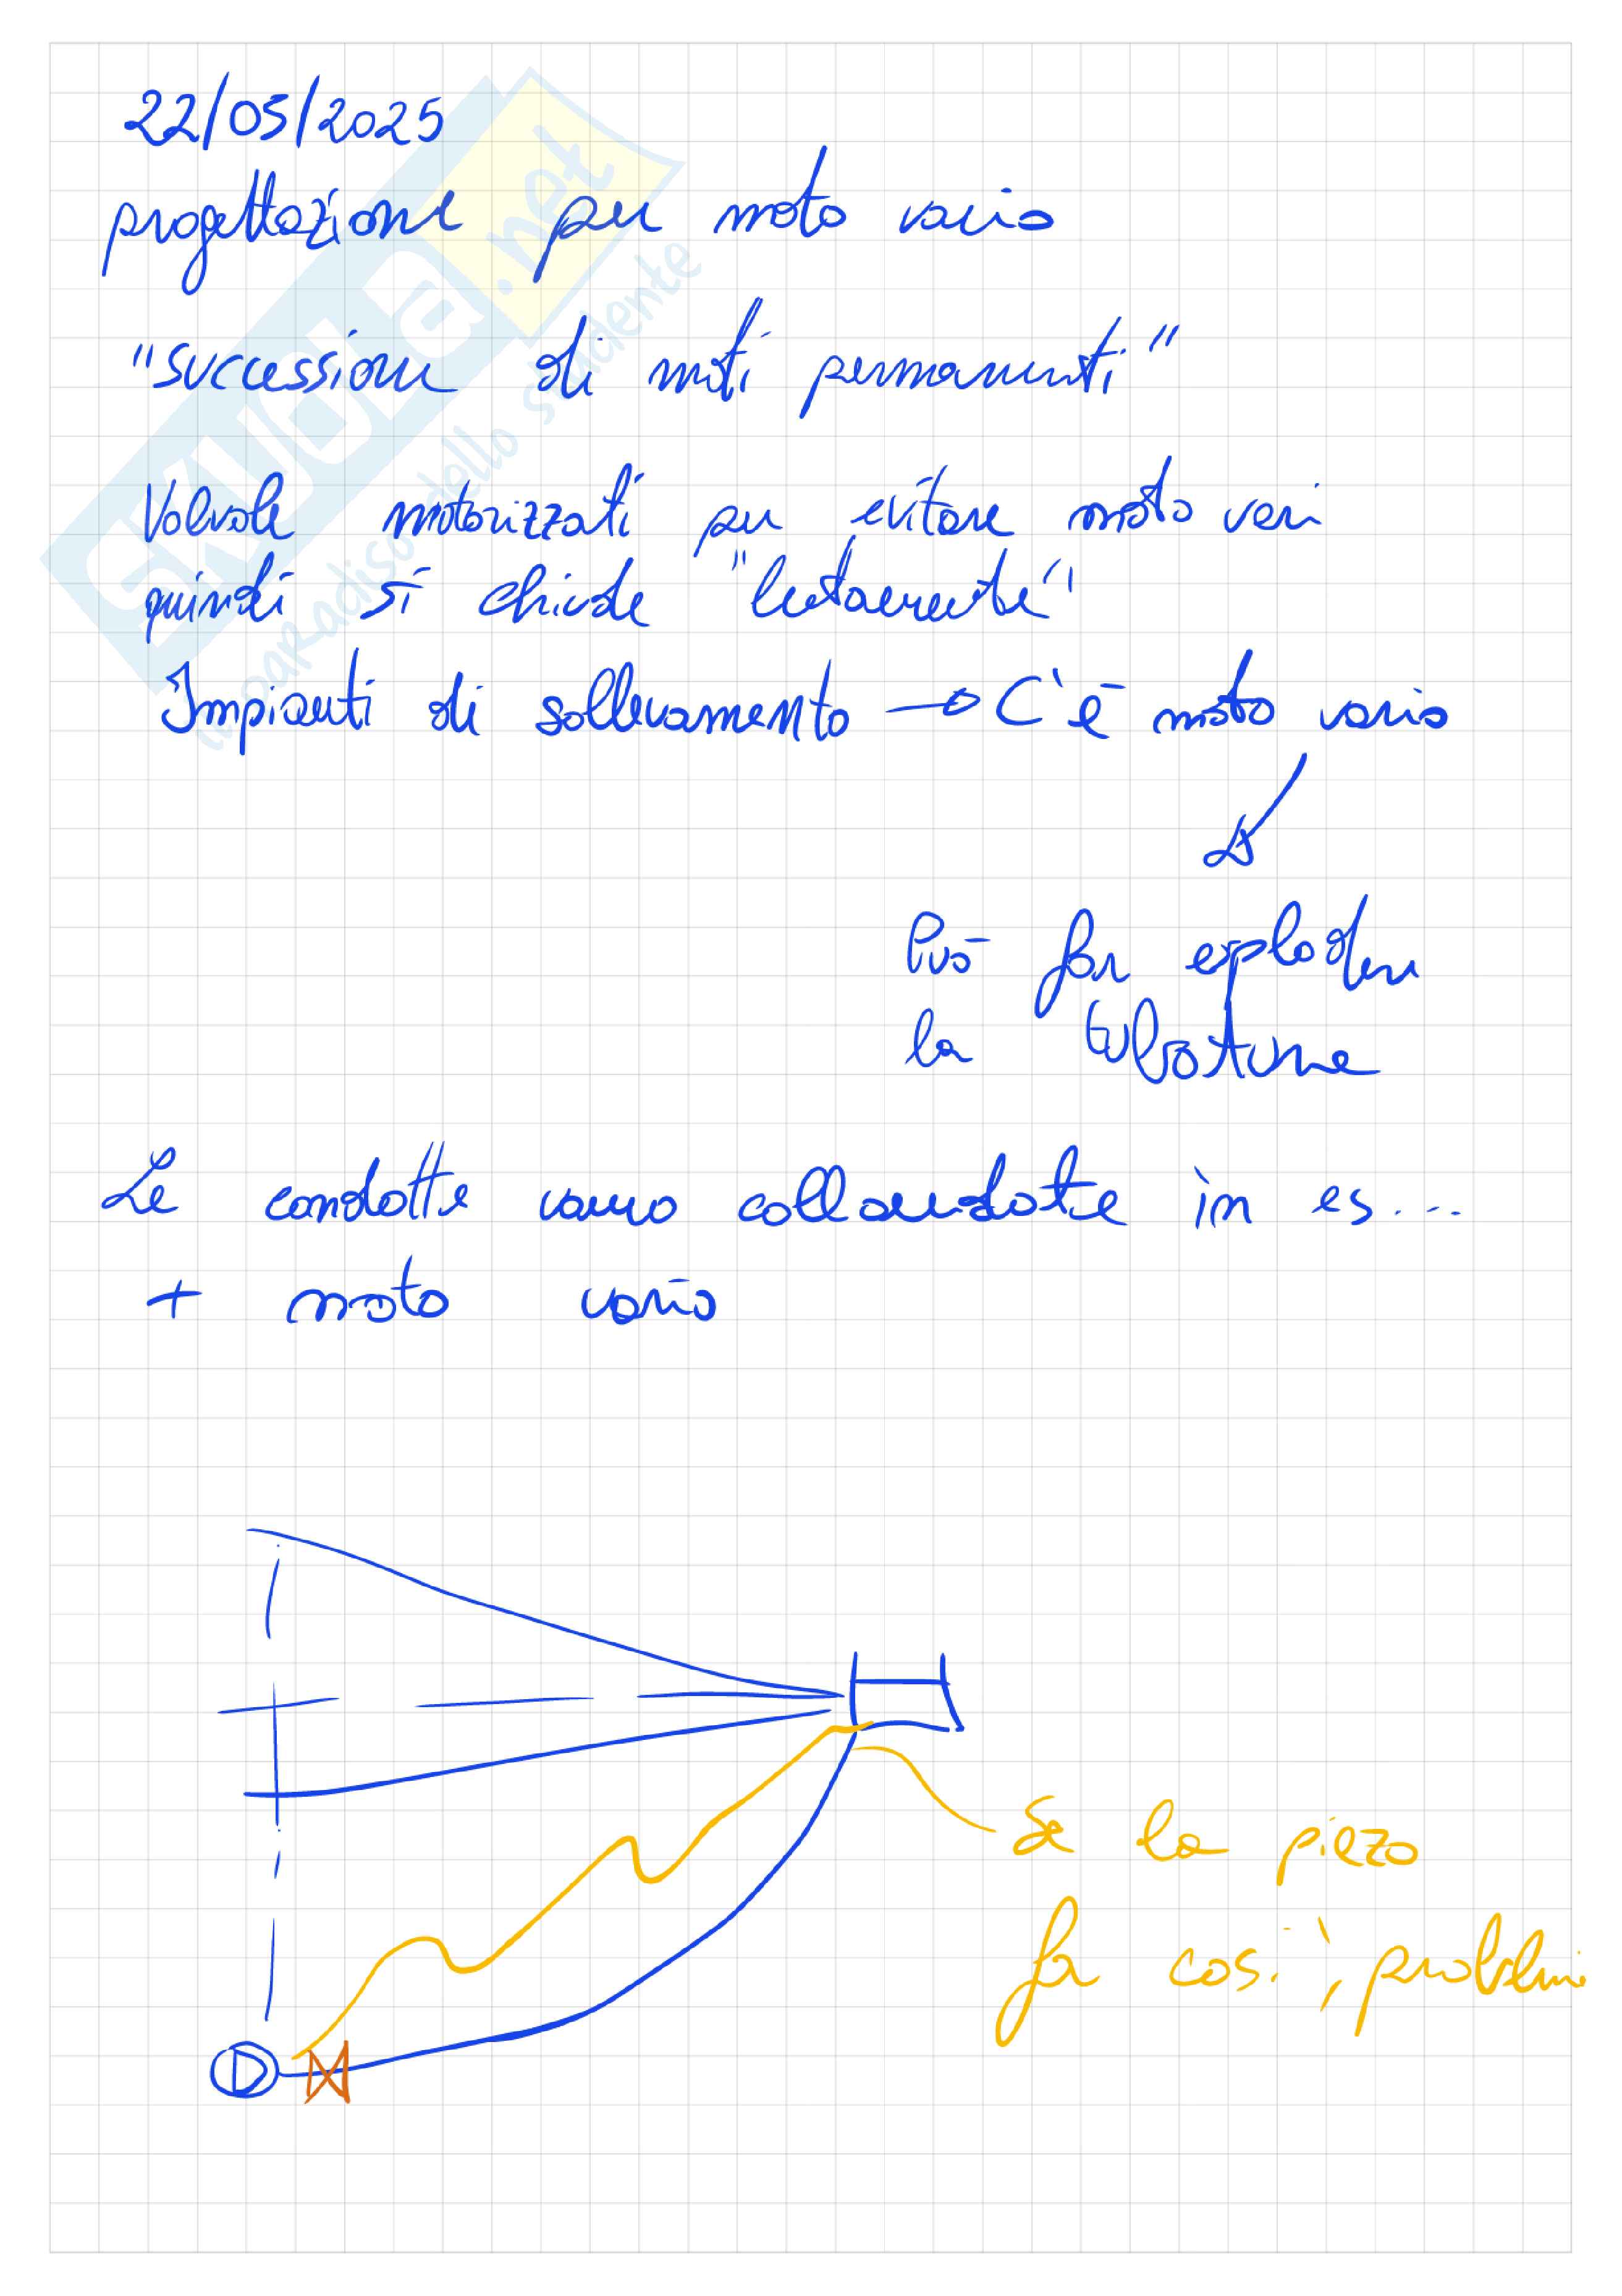 22/05/2025
progettazione per moto vario
"successione di moti permanenti"
Valvole motorizzati per evitare moto vari
quindi si chiude "lentamente"
Impianti di sollevamento → C'è moto vario
Può far esplodere
la tubatura
Le condotte vanno collaudate in es...
+ moto vario
Se la piezo
fa così, problemi
SKUOLA.net
il paradiso dello studente